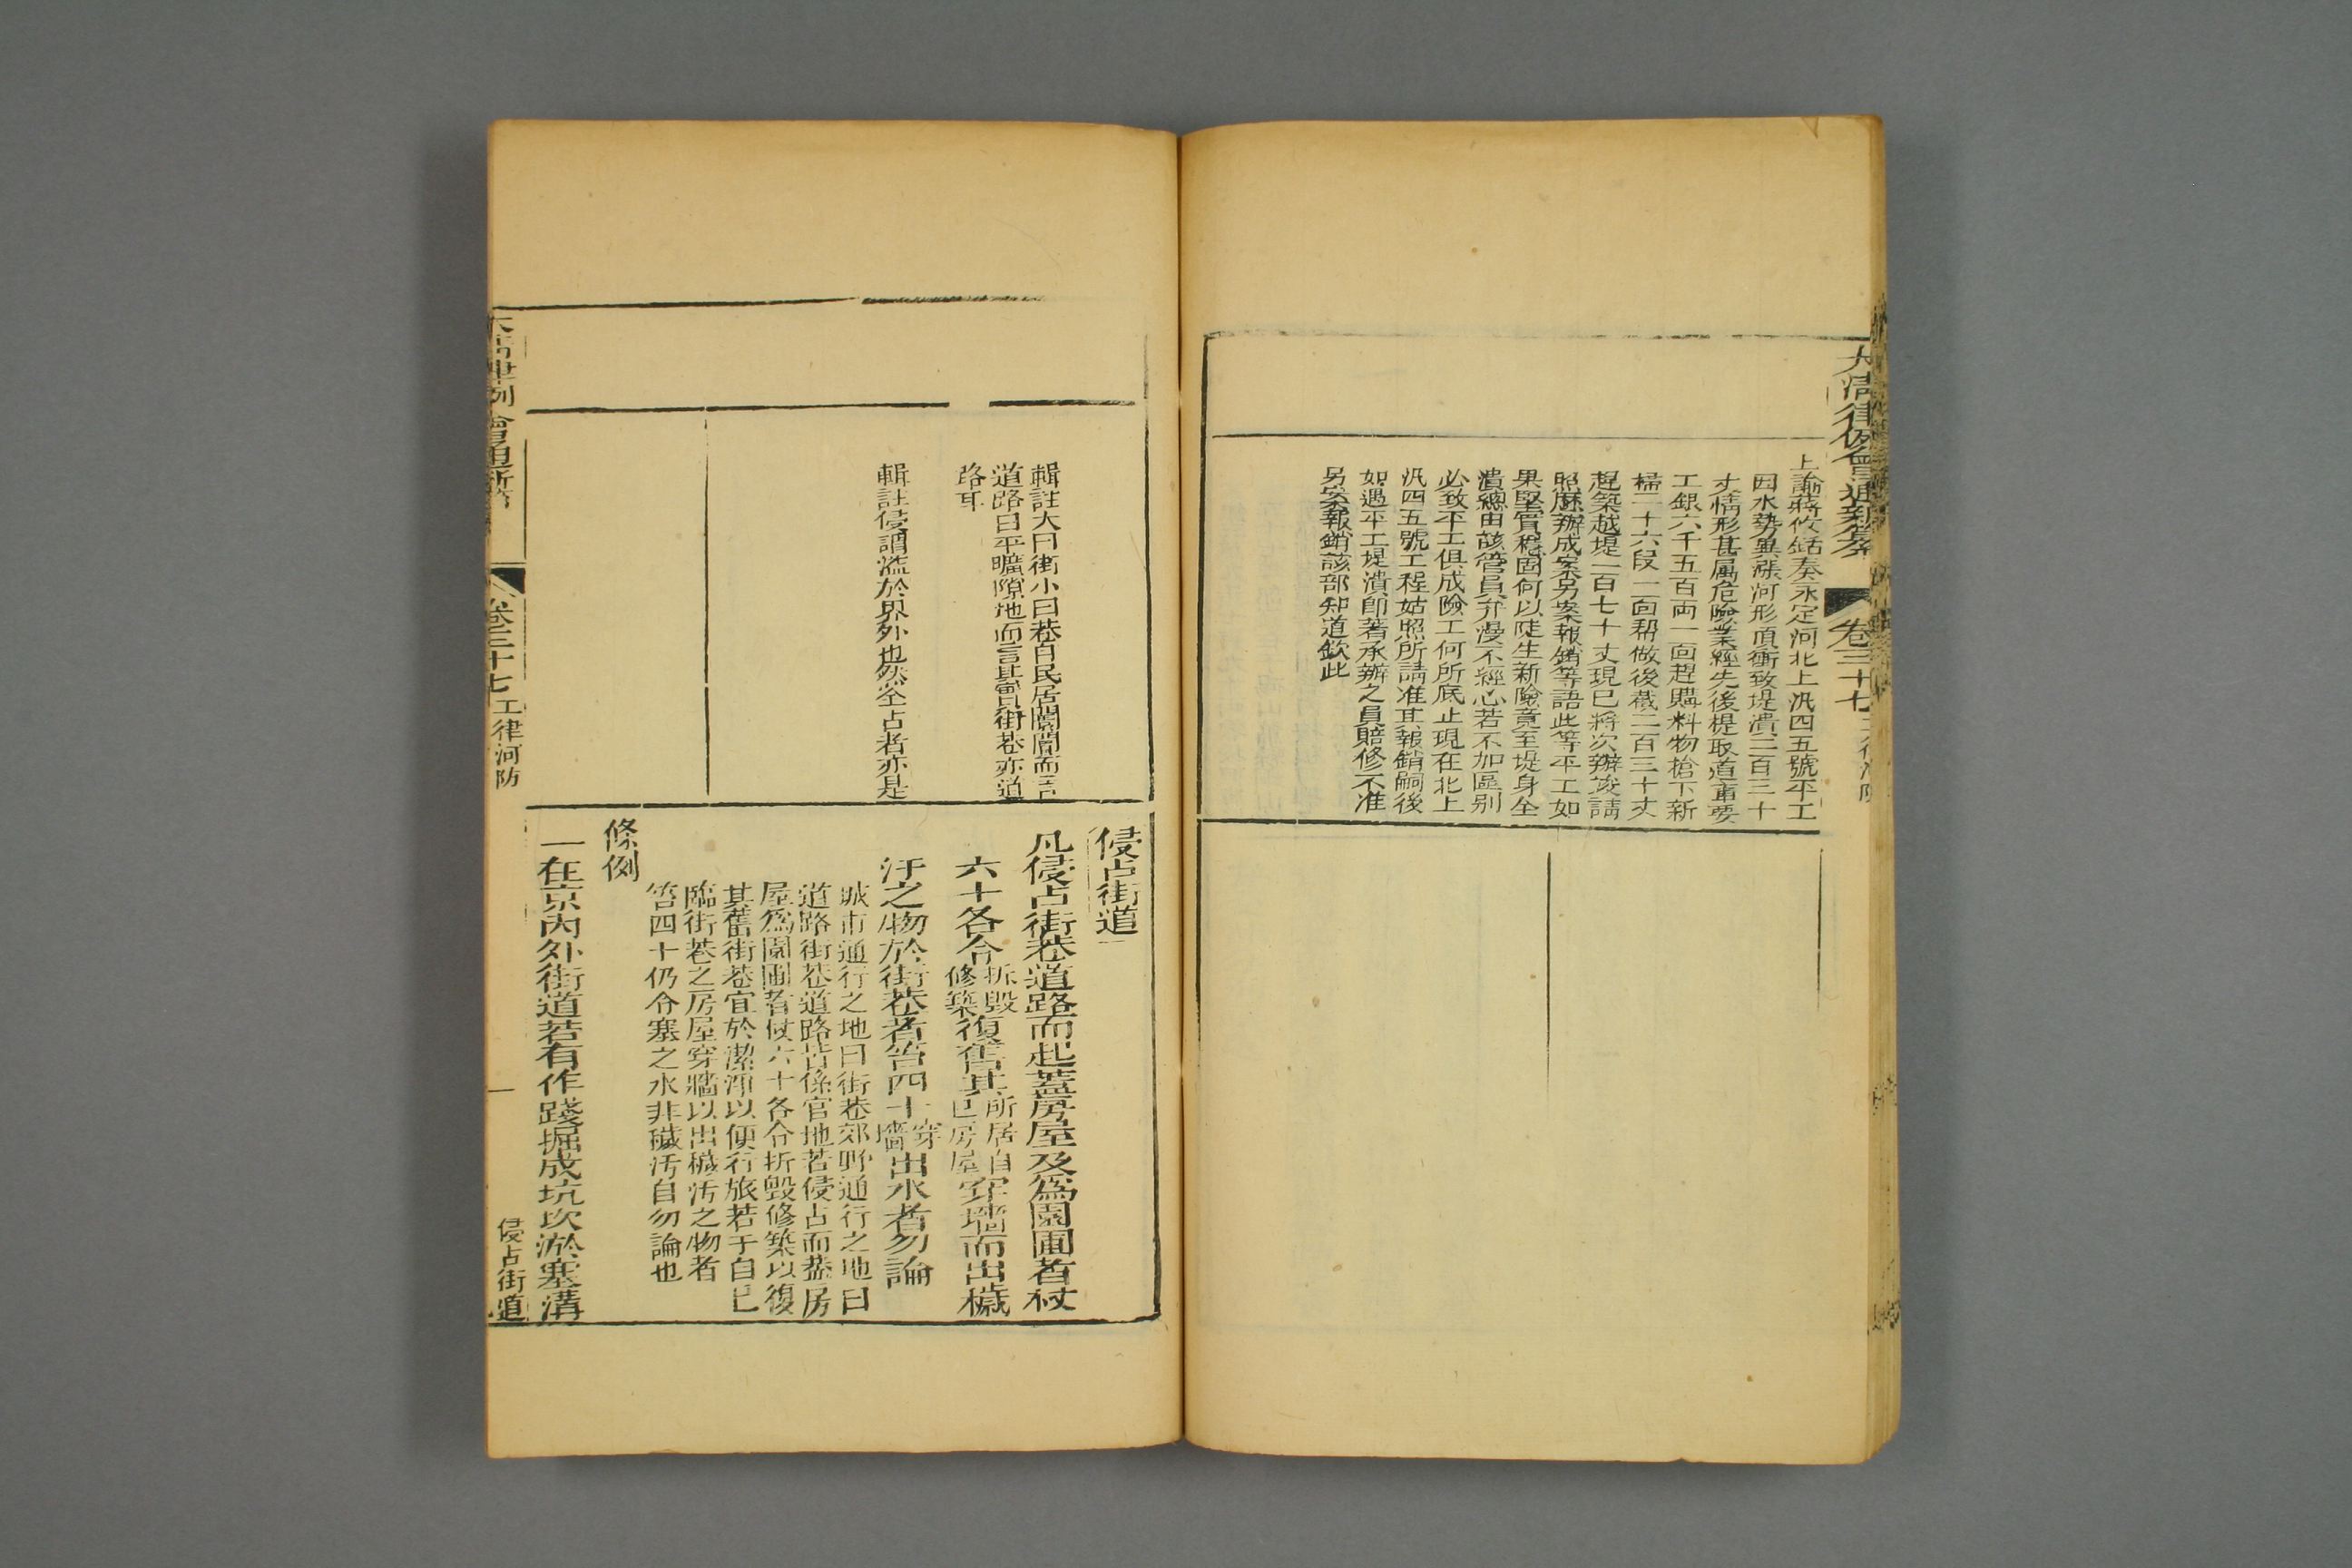 大清律例會通新纂
卷三十七
上諭蔣攸銛奏永定河北上汛四五號平工
因水勢異漲河形頂衝致堤潰二百三十
丈情形甚属危險業經先後提取道庫要
工銀六千五百両一面趕購料物搶下新
埽二十六段一面帮做後戧二百三十丈
趕築越堤一百七十丈現已將次辦竣請
照歷辦成案另案報銷等語此等平工如
果堅實穩固何以陡生新險竟至堤身坐
潰總由該管員弁漫不經心若不加區别
必致平工俱成險工何所底止現在北上
汛四五號工程姑照所請准其報銷嗣後
如遇平工堤潰卽著承辦之員賠修不准
另案報銷該部知道欽此
輯註大曰街小曰巷自民居闤闠而言
道路曰平曠隙地而言其實街巷亦道
路耳
輯註侵謂溢於界外也然全占者亦是
侵占街道
凡侵占街巷道路而起蓋房屋及爲園圃者杖
六十各令拆毀修築復舊其所居自已房屋穿墻而出穢
汙之物於街巷者笞四十穿墻出水者勿論
城市通行之地曰街巷郊野通行之地曰
道路街巷道路皆係官地若侵占而葢房
屋爲園圃者杖六十各令拆毀修築以復
其舊街巷宜於潔淨以便行旅若于自已
臨街巷之房屋穿牆以出穢汚之物者
笞四十仍令塞之水非穢汚自勿論也
條例
一在京內外街道若有作踐掘成坑坎淤塞溝
卷三十七
工律河防
侵占街道